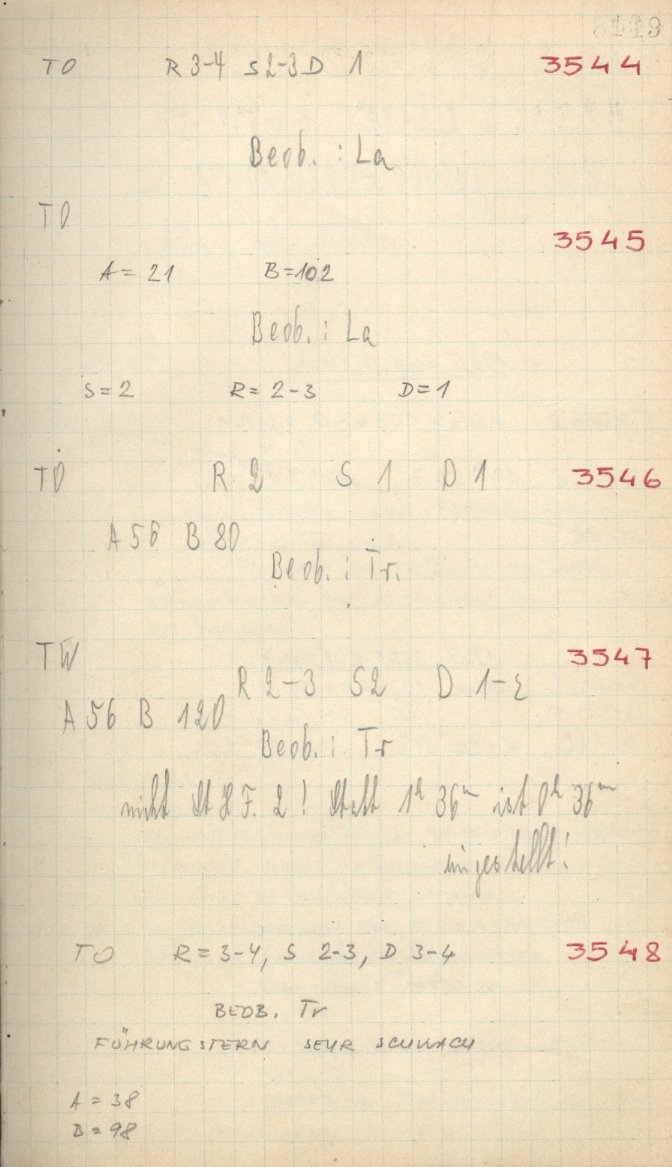 TO R 3-4 S 2-3 D 1 3544
Beob. : La
TO
3545
A = 21 B = 102
Beob. : La
S = 2 R = 2-3 D = 1
TO R 2 S 1 D 1 3546
A 56 B 80
Beob. : Tr.
TW 3547
R 2-3 S 2 D 1-2
A 56 B 120
Beob. : Tr
nicht F. 2 ! Statt 1h 36m ist 0h 36m
eingestellt!
TO R = 3-4, S 2-3, D 3-4 3548
BEOB. Tr
FÜHRUNGSTERN SEHR SCHWACH
A = 38
B = 98